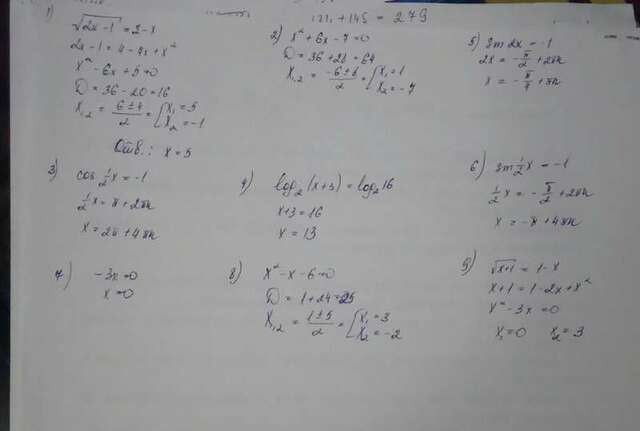 +145 = 279
1)
√2x-1 = 2-x
2x-1 = 4-4x+x²
x²-6x+5=0
D = 36-20=16
x₁,₂ = (6±4)/2 = [x₁=5 x₂=-1
Отв.: x = 5
2) x²+6x-7=0
D = 36+28=64
x₁,₂ = (-6±8)/2 = [x₁=1 x₂=-7
5) sin2x = -1
2x = -π/2 + 2πn
x = -π/4 + πn
3) cos 1/2 x = -1
1/2 x = π + 2πn
x = 2π + 4πn
4) log₂(x+3) = log₂16
x+3 = 16
x = 13
6) sin 1/2 x = -1
1/2 x = -π/2 + 2πn
x = -π + 4πn
7) -3x=0
x=0
8) x²-x-6=0
D = 1+24=25
x₁,₂ = (1±5)/2 = [x₁=3 x₂=-2
9) √x+1 = 1-x
x+1 = 1-2x+x²
x²-3x=0
x₁=0 x₂=3